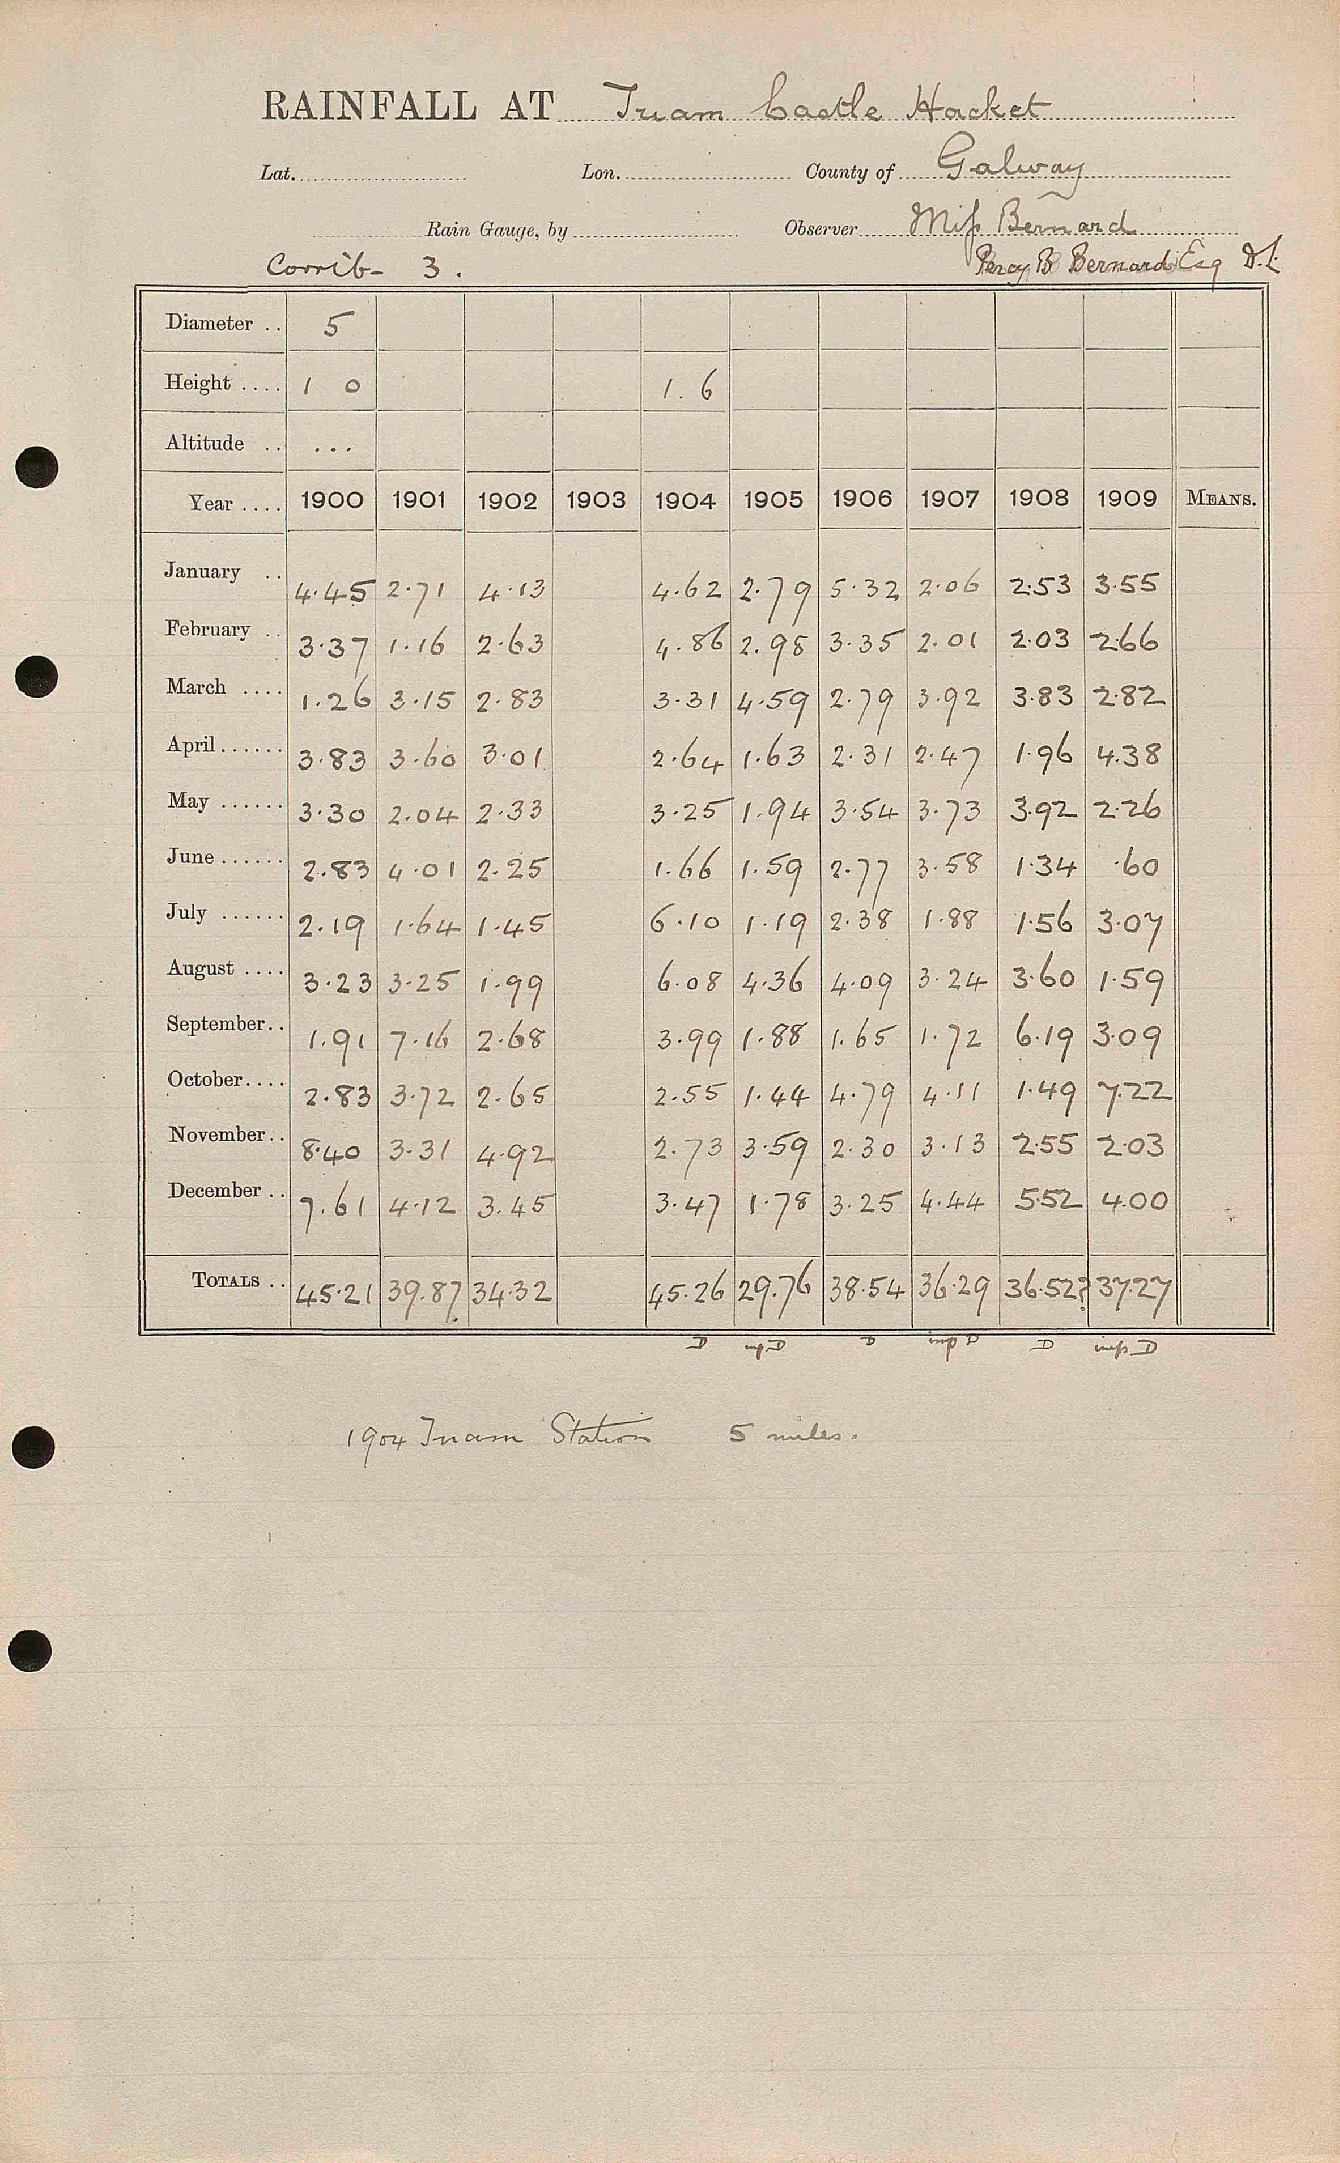 RAINFALL AT Tuam Castle Hacket
Lat. Lon. County of Galway
Rain Gauge, by Observer Miss Bernard
Corrib - 3. Percy B Bernard Esq D.L.
Diameter .. 5
Height .... 1 0 1.6
Altitude .. ...
Year .... 1900 1901 1902 1903 1904 1905 1906 1907 1908 1909 MEANS.
January .. 4.45 2.71 4.13 4.62 2.79 5.32 2.06 2.53 3.55
February .. 3.37 1.16 2.63 4.86 2.98 3.35 2.01 2.03 2.66
March .... 1.26 3.15 2.83 3.31 4.59 2.79 3.92 3.83 2.82
April ...... 3.83 3.60 3.01 2.64 1.63 2.31 2.47 1.96 4.38
May ...... 3.30 2.04 2.33 3.25 1.94 3.54 3.73 3.92 2.26
June ...... 2.83 4.01 2.25 1.66 1.59 2.77 3.58 1.34 .60
July ...... 2.19 1.64 1.45 6.10 1.19 2.38 1.88 1.56 3.07
August .... 3.23 3.25 1.99 6.08 4.36 4.09 3.24 3.60 1.59
September.. 1.91 7.16 2.68 3.99 1.88 1.65 1.72 6.19 3.09
October.... 2.83 3.72 2.65 2.55 1.44 4.79 4.11 1.49 7.22
November.. 8.40 3.31 4.92 2.73 3.59 2.30 3.13 2.55 2.03
December .. 7.61 4.12 3.45 3.47 1.78 3.25 4.44 5.52 4.00
TOTALS .. 45.21 39.87 34.32 45.26 29.76 38.54 36.29 36.52? 37.27
D imp D D imp D D imp D
1904 Tuam Station 5 miles.